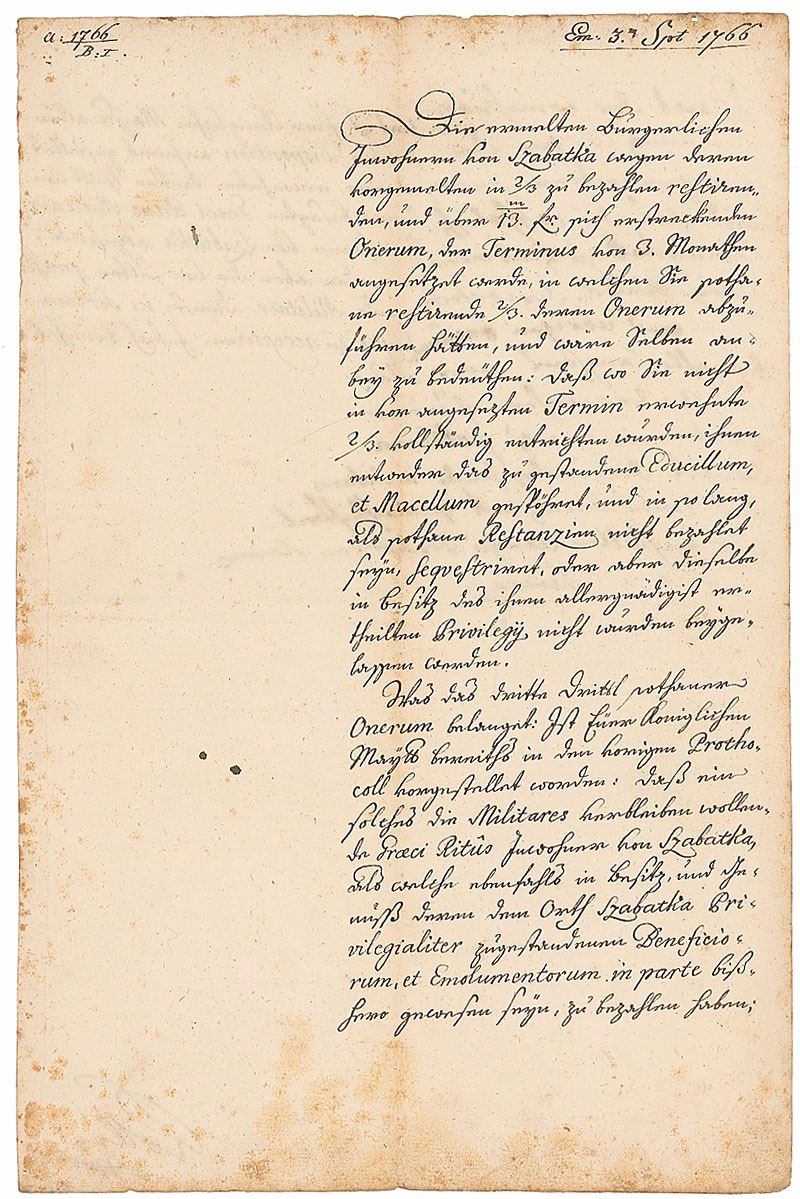 a: 1766
B: I.
Em. 3.ᵃ Spt 1766
Die ermelten Bürgerlichen
Inwohnern von Szabatka wegen deren
vorgemelten in 2/3 zu bezahlen restiren-
den, und über 13.ᵐ fr. sich erstreckenden
Onerum, der Terminus von 3. Monathen
angesetzet werde, in welchen Sie sotha-
ne restirende 2/3. deren Onerum abzu-
führen hätten, und wäre Selben an-
bey zu bedeuthen: daß wo Sie nicht
in vor angesezten Termin erwehnte
2/3. vollständig entrichten wurden, ihnen
entweder das zugestandene Educillum,
et Macellum gespöhret, und in so lang,
als sothane Restanzien nicht bezahlet
seyn, seqvestriret, oder aber dieselbe
in besitz des ihnen allergnädigist er-
theilten Privilegij nicht wurden beyge-
lassen werden.
Was das dritte Drittl sothaner
Onerum belanget: Ist Euer Königlichen
Maytt bereiths in den vorigen Protho-
coll vorgestellet worden: daß ein
solches die Militares verbleiben wollen-
de Græci Ritûs Inwohner von Szabatka,
als welche ebenfahls in Besitz, und Ge-
nuß deren dem Orth Szabatka Pri-
vilegialiter zugestandenen Beneficio-
rum, et Emolumentorum in parte biß-
hero gewesen seyn, zu bezahlen haben;